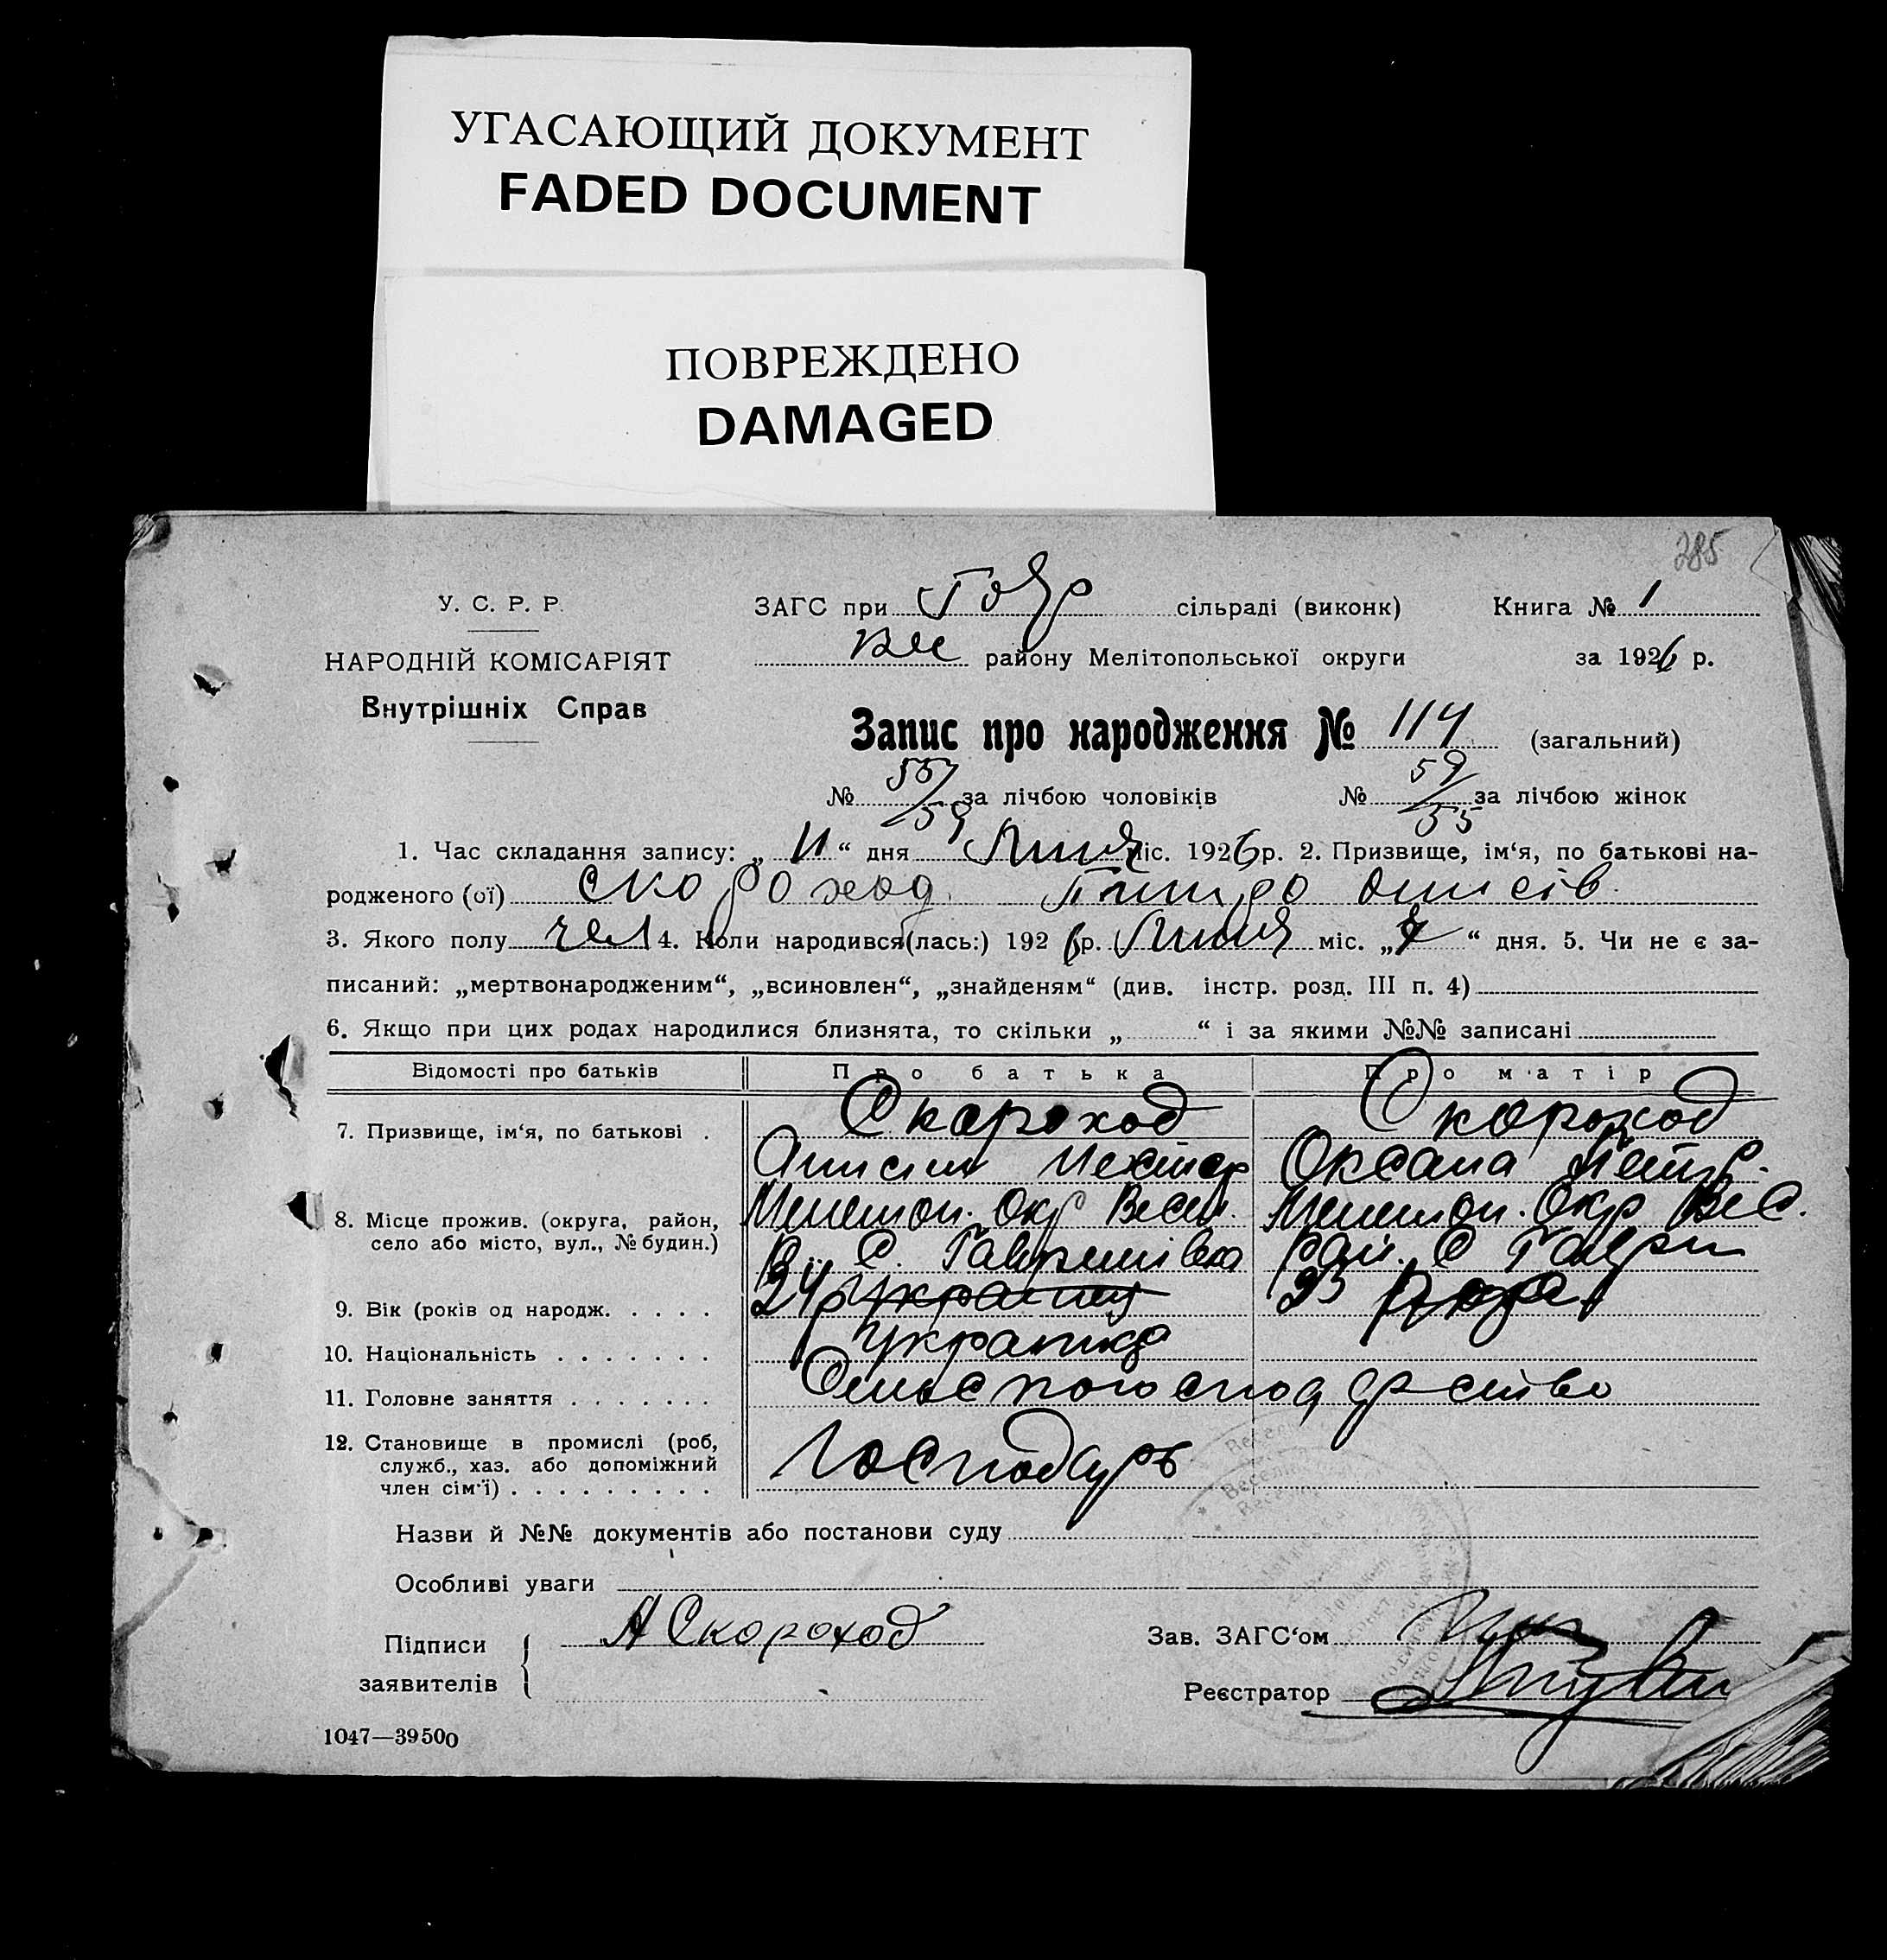 УГАСАЮЩИЙ ДОКУМЕНТ
FADED DOCUMENT
ПОВРЕЖДЕНО
DAMAGED
285
У. С. Р. Р.
НАРОДНІЙ КОМІСАРІЯТ
Внутрішніх Справ
ЗАГС при сільраді (виконк) Книга № 1
Вес району Мелітопольської округи за 1926 р.
Запис про народження № 114 (загальний)
№ за лічбою чоловіків № за лічбою жінок
1. Час складання запису: „ 11 “ дня Липня міс. 1926 р. 2. Призвище, ім‘я, по батькові на-
родженого (ої) Скороход
3. Якого полу чел 4. Коли народився(лась:) 1926 р. Липня міс. „ “ дня. 5. Чи не є за-
писаний: „мертвонародженим“, „всиновлен“, „знайденям“ (див. інстр. розд. III п. 4)
6. Якщо при цих родах народилися близнята, то скільки „ “ і за якими №№ записані
Відомості про батьків Про батька Про матір
7. Призвище, ім‘я, по батькові . Скороход Скороход
Оксана
8. Місце прожив. (округа, район, Мелетоп. Окр Весел. Мелетоп. Окр Вес.
село або місто, вул., № будин.) С. Гаврилівка Рай. С Гаври
9. Вік (років од народж. . . . . 24 23
10. Національність . . . . . . . Українці
11. Головне заняття . . . . . . . Сильське господарство
12. Становище в промислі (роб, Господарь
служб., хаз. або допоміжний
член сім‘ї) . . . . . . . . .
Назви й №№ документів або постанови суду
Особливі уваги
Підписи А Скороход Зав. ЗАГС‘ом
заявителів Реєстратор
1047—39500